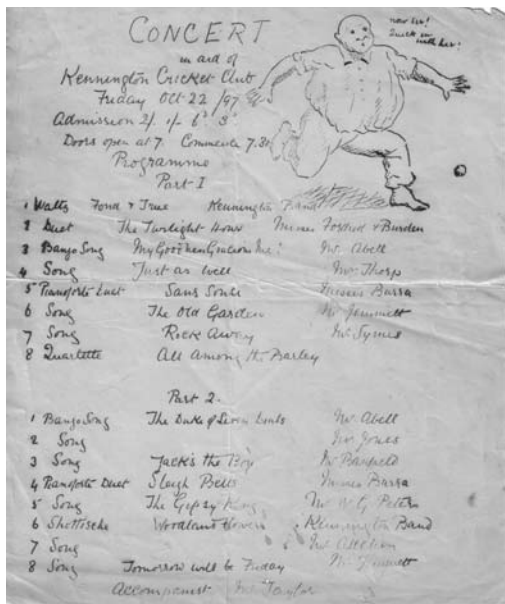 CONCERT
in aid of
Kennington Cricket Club
Friday Oct 22 /97
Admission 2/. 1/- 6d 3d
Doors open at 7. Commence 7.30
now her!
Quick in
with her!
Programme
Part I
1 Waltz Fond & True Kennington Band
2 Duet The Twilight Hour Misses & Burden
3 Banjo Song My Goodness Gracious Me! Mr. Abell
4 Song Just as well Mr. Thorp
5 Pianoforte Duet Sans Souci Misses Barsa
6 Song The Old Garden Mr Jemmett
7 Song Rock Away Mr Symes
8 Quartette All Among the Barley
Part 2.
1 Banjo Song The Duke of Seven Dials Mr. Abell
2 Song Mr Jones
3 Song Jack's the Boy Mr Banfield
4 Pianoforte Duet Sleigh Bells Misses Barsa
5 Song The Gipsy King Mr W. G. Peters
6 Shottische Woodland Flowers Kennington Band
7 Song
8 Song Tomorrow will be Friday Mr Jemmett
Accompanist Mr Taylor